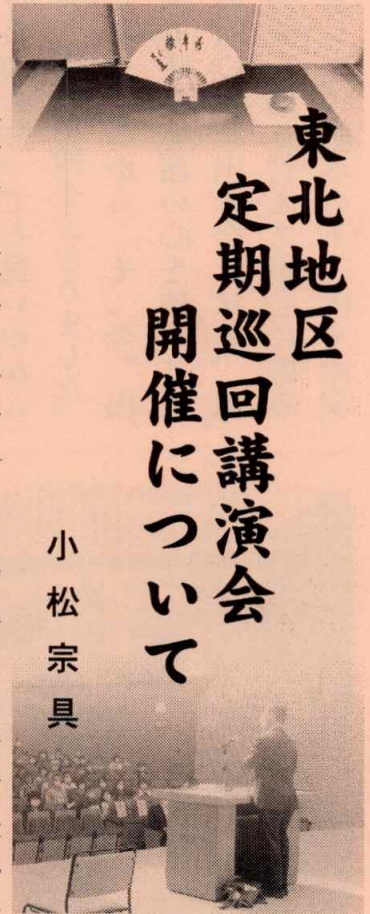 東北地区
定期巡回講演会
開催について
小松宗具